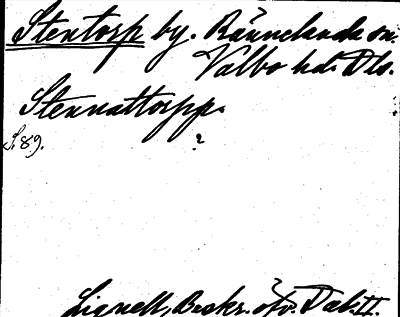 Stentorp by. Rännelanda sn.
Valbo hd. Dls.
Stennattorpp.
S. 89. ?
Lignell, Beskr. öfv. Dal. II.